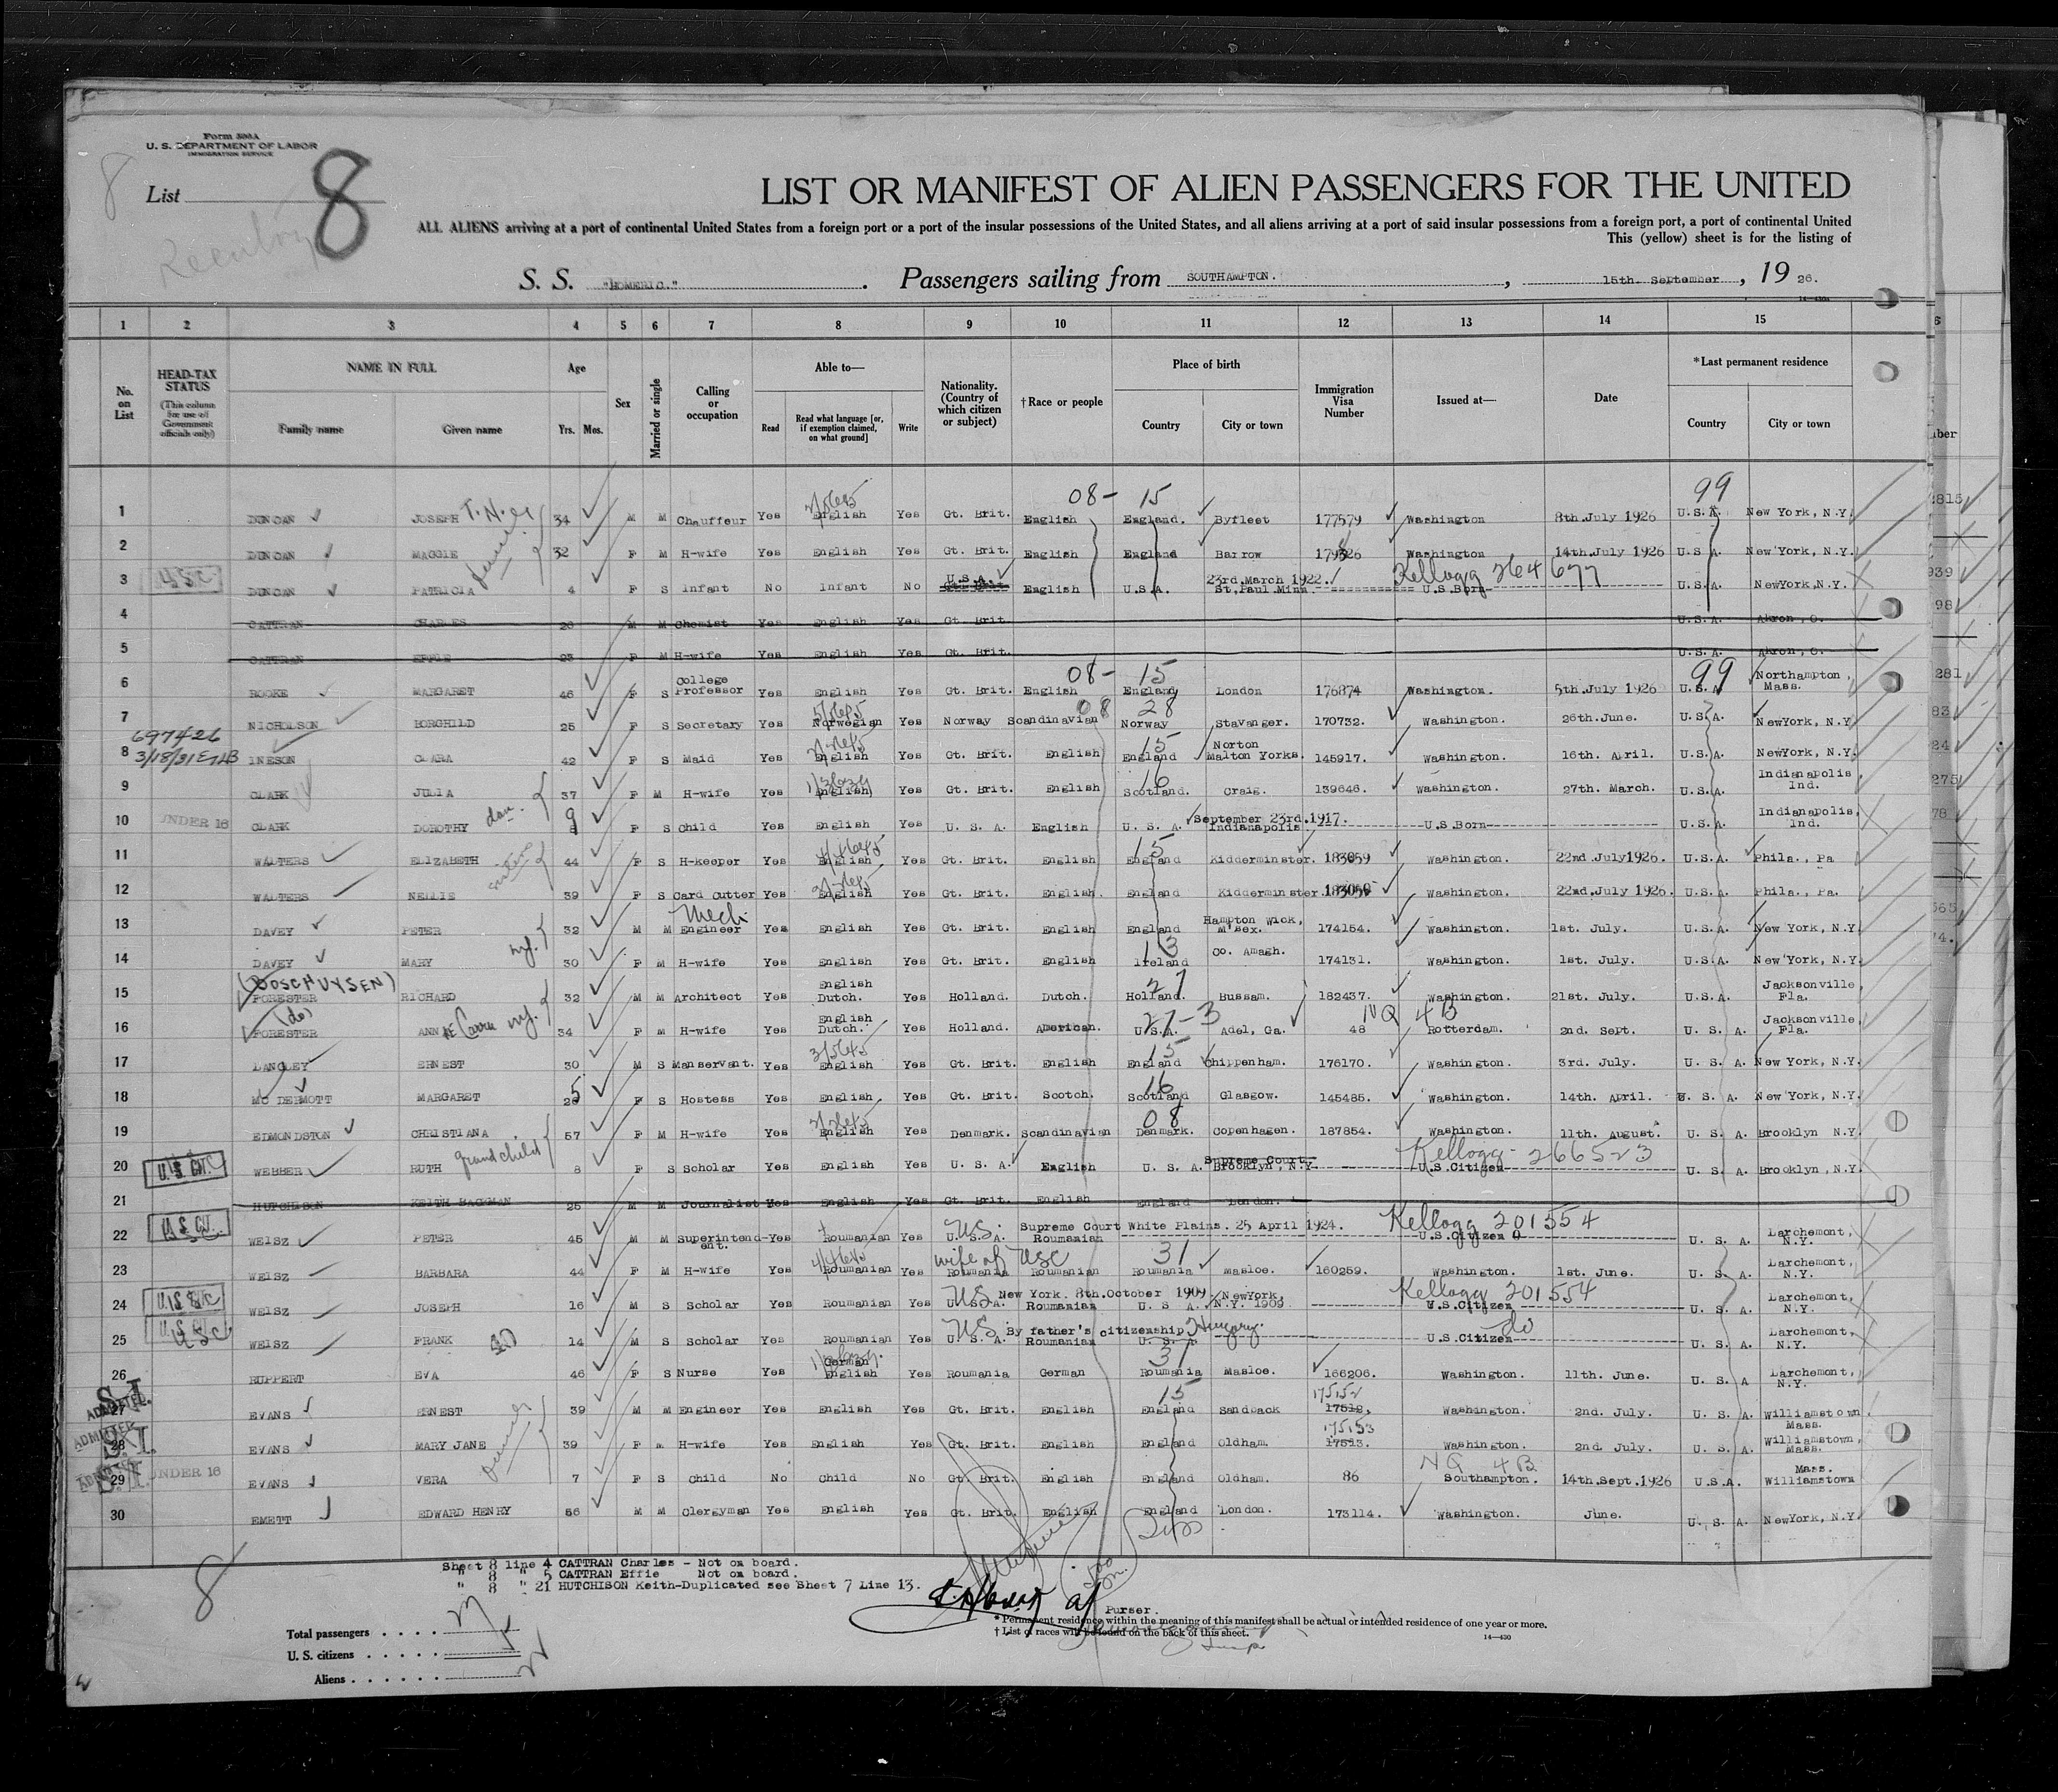 Form 500A
U. S. DEPARTMENT OF LABOR
IMMIGRATION SERVICE
List 8
LIST OR MANIFEST OF ALIEN PASSENGERS FOR THE UNITED
ALL ALIENS arriving at a port of continental United States from a foreign port or a port of the insular possessions of the United States, and all aliens arriving at a port of said insular possessions from a foreign port, a port of continental United
This (yellow) sheet is for the listing of
S. S. "HOMERIC." Passengers sailing from SOUTHAMPTON. , 15th. September , 19 26.
1 2 3 4 5 6 7 8 9 10 11 12 13 14 15
No. on List HEAD-TAX STATUS (This column for use of Government officials only) NAME IN FULL Family name Given name Age Yrs. Mos. Sex Married or single Calling or occupation Able to— Read Read what language [or, if exemption claimed, on what ground] Write Nationality. (Country of which citizen or subject) † Race or people Place of birth Country City or town Immigration Visa Number Issued at— Date *Last permanent residence Country City or town
08- 15 99
1 DUNCAN JOSEPH 34 M M Chauffeur Yes English Yes Gt. Brit. English England. Byfleet 177579 Washington 8th.July 1926 U.S.A. New York, N.Y.
2 DUNCAN MAGGIE 32 F M H-wife Yes English Yes Gt. Brit. English England Barrow Washington 14th.July 1926 U.S.A. New York, N.Y.
3 USC DUNCAN PATRICIA 4 F S Infant No Infant No U.S.A. Gt. Brit. English U.S.A. 23rd.March 1922. St.Paul.Minn. U.S.Born Kellogg 264677 U.S.A. NewYork,N.Y.
4 CATTRAN CHARLES 26 M M Chemist Yes English Yes Gt. Brit U.S.A. Akron, O.
5 CATTRAN EFFIE 23 F M H-wife Yes English Yes Gt. Brit. U.S.A. Akron, O.
08- 15 99
6 ROOKE MARGARET 46 F S College Professor Yes English Yes Gt. Brit. English England London 176874 Washington. 5th.July 1926 U.S.A Northampton, Mass.
08 28
7 NICHOLSON BORGHILD 25 F S Secretary Yes Norwegian Yes Norway Scandinavian Norway Stavanger. 170732. Washington. 26th.June. U.S.A. NewYork, N.Y.
697426
3/18/31
8 INESON CLARA 42 F S Maid Yes English Yes Gt. Brit. English 15 England Norton Malton Yorks. 145917. Washington. 16th. April. U.S.A. NewYork, N.Y.
9 CLARK JULIA 37 F M H-wife Yes English Yes Gt. Brit. English 16 Scotland. Craig. 139646. Washington. 27th. March. U.S.A. Indianapolis Ind.
10 UNDER 16 CLARK DOROTHY dau. 9 F S Child Yes English Yes U. S. A. English U. S. A. September 23rd.1917. Indianapolis. U.S.Born U.S.A. Indianapolis, Ind.
11 WALTERS ELIZABETH 44 F S H-keeper Yes English Yes Gt. Brit. English 15 England Kidderminster. 183059 Washington. 22nd.July1926. U.S.A. Phila., Pa
12 WALTERS NELLIE sisters 39 F S Card Cutter Yes English Yes Gt. Brit. English. England Kidderminster. Washington. 22nd.July 1926. U.S.A. Phila., Pa.
13 DAVEY PETER 32 M M Mech Engineer Yes English Yes Gt. Brit. English England Hampton Wick, M'sex. 174154. Washington. 1st. July. U.S.A. New York, N.Y
14 DAVEY MARY wf. 30 F M H-wife Yes English Yes Gt. Brit. English 13 Ireland Co. Amagh. 174131. Washington. 1st. July. U.S.A. New York, N.Y.
15 (BOSCHUYSEN) FORESTER RICHARD 32 M M Architect Yes English Dutch. Yes Holland. Dutch. 27 Holland. Bussam. 182437. Washington. 21st. July. U.S.A. Jacksonville, Fla.
16 (do) FORESTER ANNE wf. 34 F M H-wife Yes English Dutch. Yes Holland. American. 27-3 U.S.A. Adel, Ga. 48 NQ 4B Rotterdam. 2nd. Sept. U. S. A. Jacksonville, Fla.
17 LANGLEY ERNEST 30 M S Manservant. Yes English Yes Gt. Brit. English 15 England Chippenham. 176170. Washington. 3rd. July. U. S. A. New York, N.Y.
18 MC DERMOTT MARGARET F S Hostess Yes English Yes Gt. Brit. Scotch. 16 Scotland Glasgow. 145485. Washington. 14th. April. U. S. A. New York, N.Y.
19 EDMONDSTON CHRISTIANA 57 F M H-wife Yes English Yes Denmark. Scandinavian 08 Denmark. Copenhagen. 187854. Washington. 11th. August. U. S. A. Brooklyn N.Y.
20 U.S.CIT WEBBER RUTH grandchild 8 F S Scholar Yes English Yes U. S. A. English U. S. A. Supreme Court Brooklyn, N.Y. U.S.Citizen Kellogg 266523 U. S. A. Brooklyn, N.Y.
21 HUTCHISON KEITH HACKMAN 25 M M Journalist Yes English Yes Gt. Brit. English England London.
22 U.S.CIT. WEISZ PETER 45 M M Superintendent. Yes Roumanian Yes US. U.S.A. Supreme Court White Plains. 25 April 1924. Roumanian U.S.Citizen Kellogg 201554 U. S. A. Larchemont, N.Y.
23 WEISZ BARBARA 44 F M H-wife Yes Roumanian Yes wife of USC Roumania Roumanian 31 Roumania Masloe. 160259. Washington. 1st. June. U. S. A. Larchemont, N.Y.
24 U.S.CIT WEISZ JOSEPH 16 M S Scholar Yes Roumanian Yes US U.S.A New York. 8th.October 1909. Roumanian U. S. A. NewYork, N.Y. 1909 U.S.Citizen Kellogg 201554 U. S. A. Larchemont, N.Y.
25 U.S.CIT USC WEISZ FRANK 14 M S Scholar Yes Roumanian Yes US U.S.A. By father's citizenship Roumanian U. S. A. Hungary. U.S.Citizen do U. S. A. Larchemont, N.Y.
26 RUPPERT EVA 46 F S Nurse Yes German English Yes Roumania German 31 Roumania Masloe. 166206. Washington. 11th. June. U. S. A Larchemont, N.Y.
27 S.I. ADMITTED. EVANS ERNEST 39 M M Engineer Yes English Yes Gt. Brit. English 15 England Sandback 175152 Washington. 2nd. July. U. S. A. Williamstown. Mass.
28 S.I. ADMITTED EVANS MARY JANE 39 F M H-wife Yes English Yes Gt. Brit. English England Oldham. 175153 17513. Washington. 2nd. July. U. S. A. Williamstown, Mass.
29 S.I. ADMITTED UNDER 16 EVANS VERA 7 F S Child No Child No Gt. Brit. English England Oldham. 86 NQ 4B Southampton. 14th.Sept.1926 U.S.A. Mass. Williamstown
30 EMETT EDWARD HENRY 56 M M Clergyman Yes English Yes Gt. Brit. English England London. 173114. Washington. June. U. S. A. NewYork, N.Y
Sheet 8 line 4 CATTRAN Charles - Not on board.
" 8 " 5 CATTRAN Effie Not on board.
" 8 " 21 HUTCHISON Keith-Duplicated see Sheet 7 Line 13.
8
Purser.
* Permanent residence within the meaning of this manifest shall be actual or intended residence of one year or more.
† List of races will be found on the back of this sheet.
14—430
Total passengers
U. S. citizens
Aliens